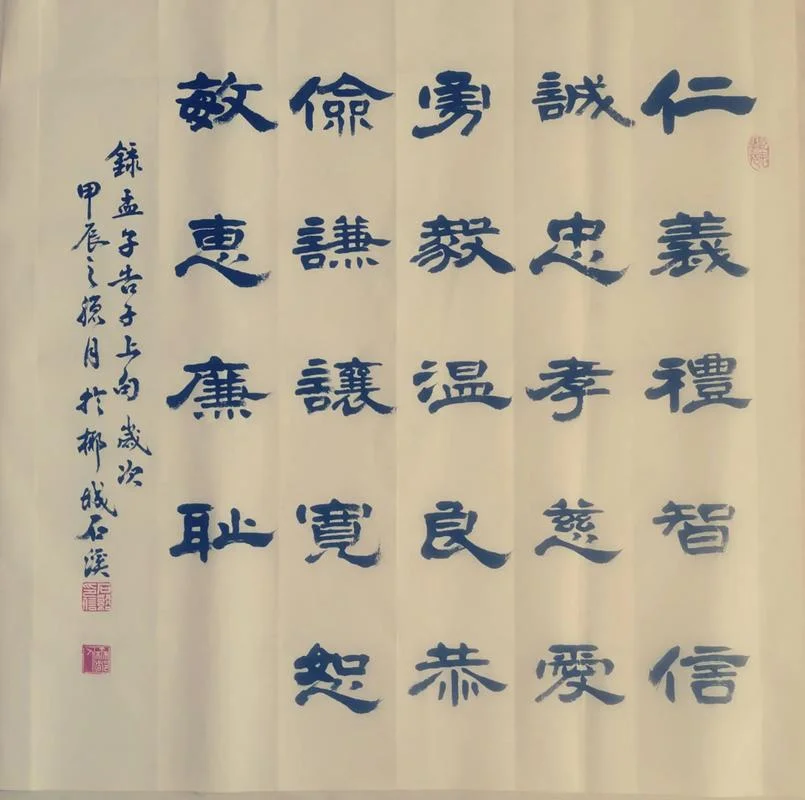 仁義禮智信
誠忠孝慈愛
勇毅温良恭
儉謙讓寬恕
敏惠廉耻
録孟子告子上句歲次
甲辰之臘月於椰城石溪